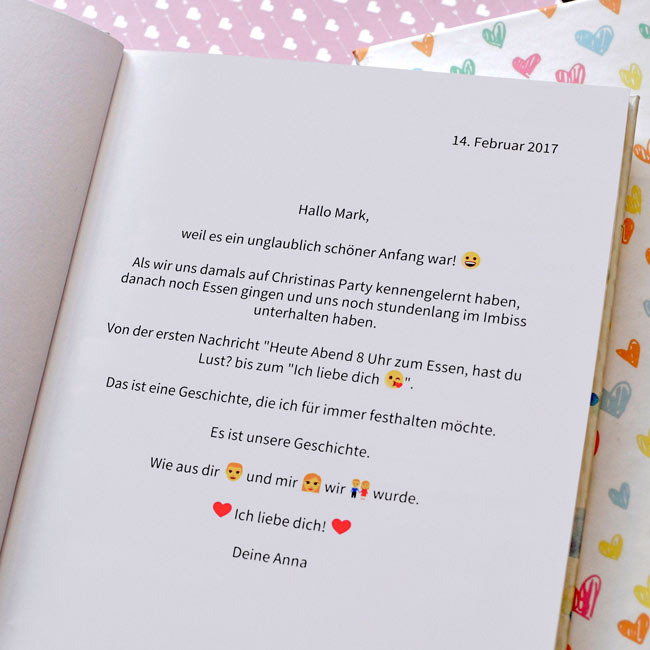 14. Februar 2017
Hallo Mark,
weil es ein unglaublich schöner Anfang war! 😀
Als wir uns damals auf Christinas Party kennengelernt haben,
danach noch Essen gingen und uns noch stundenlang im Imbiss
unterhalten haben.
Von der ersten Nachricht "Heute Abend 8 Uhr zum Essen, hast du
Lust? bis zum "Ich liebe dich 😘".
Das ist eine Geschichte, die ich für immer festhalten möchte.
Es ist unsere Geschichte.
Wie aus dir 👨 und mir 👩 wir 👫 wurde.
❤ Ich liebe dich! ❤
Deine Anna